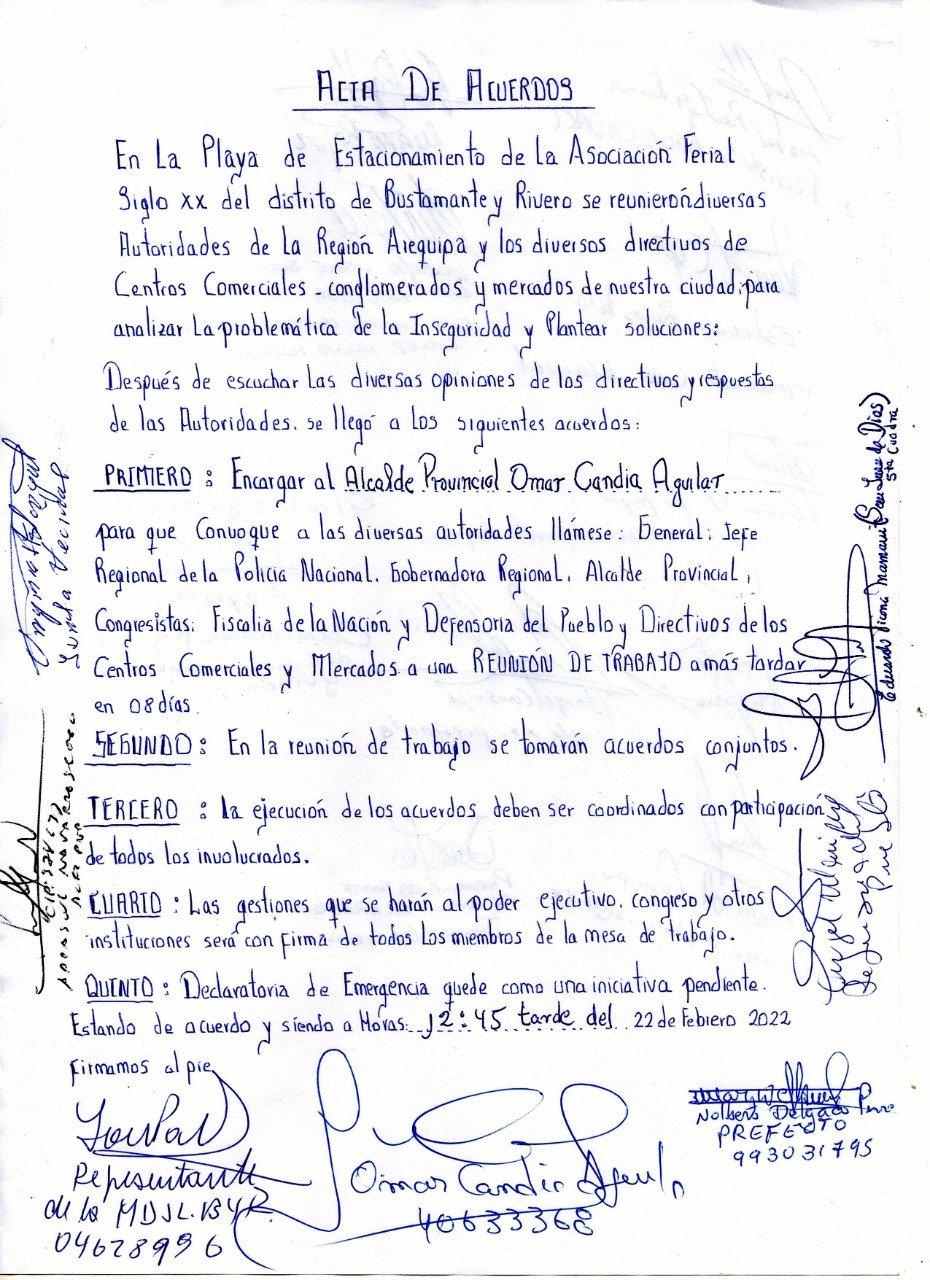 ACTA DE ACUERDOS
En La Playa de Estacionamiento de la Asociación Ferial
Siglo XX del distrito de Bustamante y Rivero se reunierón diversas
Autoridades de la Región Arequipa y los diversos directivos de
Centros Comerciales - conglomerados y mercados de nuestra ciudad, para
analizar La problemática de la Inseguridad y Plantear soluciones:
Después de escuchar las diversas opiniones de los directivos y respuestas
de las Autoridades. se llegó a los siguientes acuerdos:
PRIMERO : Encargar al Alcalde Provincial Omar Candia Aguilar
para que Convoque a las diversas autoridades llámese: General: Jefe
Regional de la Policia Nacional. Gobernadora Regional. Alcalde Provincial,
Congresistas: Fiscalia de la Nación y Defensoria del Pueblo y Directivos de los
Centros Comerciales y Mercados a una REUNIÓN DE TRABAJO a más tardar
en 08 días.
SEGUNDO : En la reunión de trabajo se tomarán acuerdos conjuntos.
TERCERO : la ejecución de los acuerdos deben ser coordinados con participación
de todos los involucrados.
CUARTO : Las gestiones que se harán al poder ejecutivo. congreso y otros
instituciones será con firma de todos los miembros de la mesa de trabajo.
QUINTO : Declaratoria de Emergencia quede como una iniciativa pendiente.
Estando de acuerdo y siendo a Horas: 12:45 tarde del 22 de Febrero 2022
firmamos al pie
Representante
de la MDJL.BYR.
04628996
Omar Candia Aguilar
40633368
Nolberto Delgado
PREFECTO
993031795
Junta Vecinal
Eduardo Ticona Mamani (San Juan de Dios)
5ta Cuadra